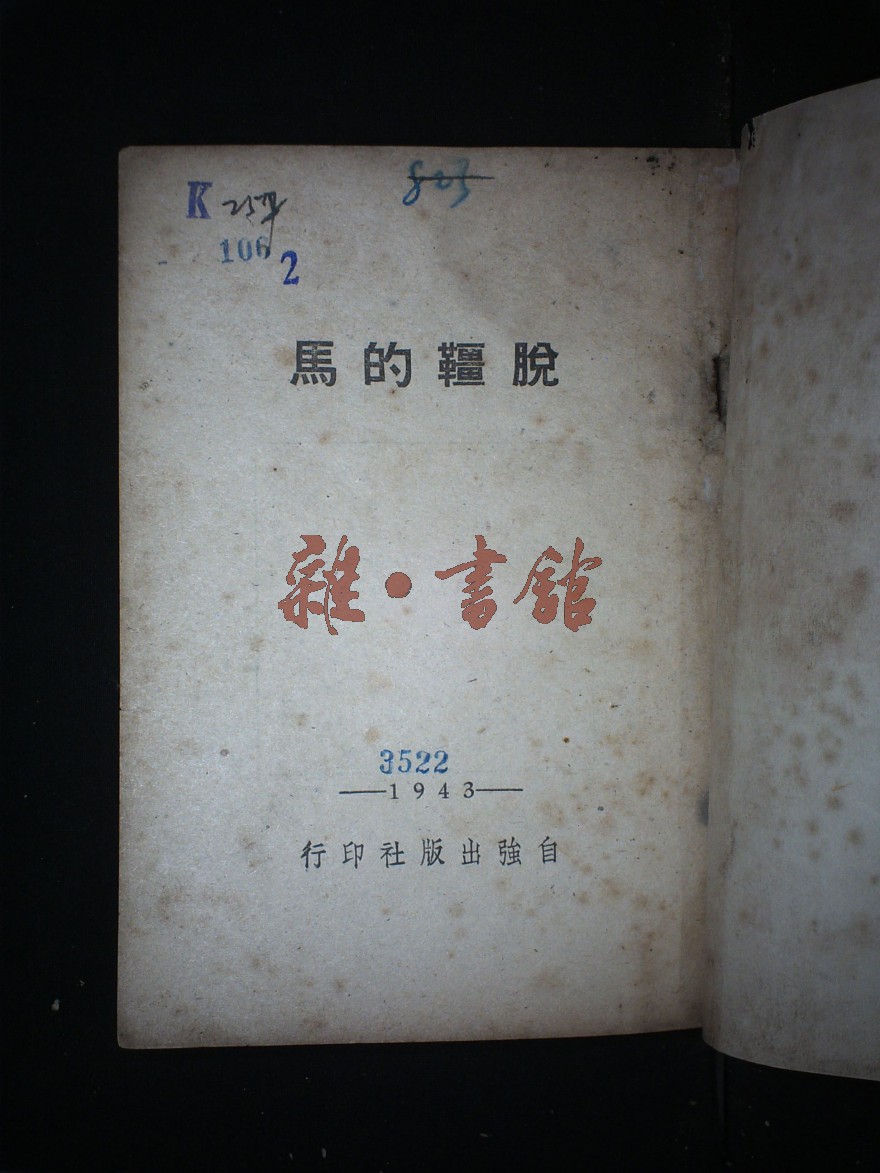 K
823
106
2
脫韁的馬
雜·書館
3522
—1943—
自強出版社印行